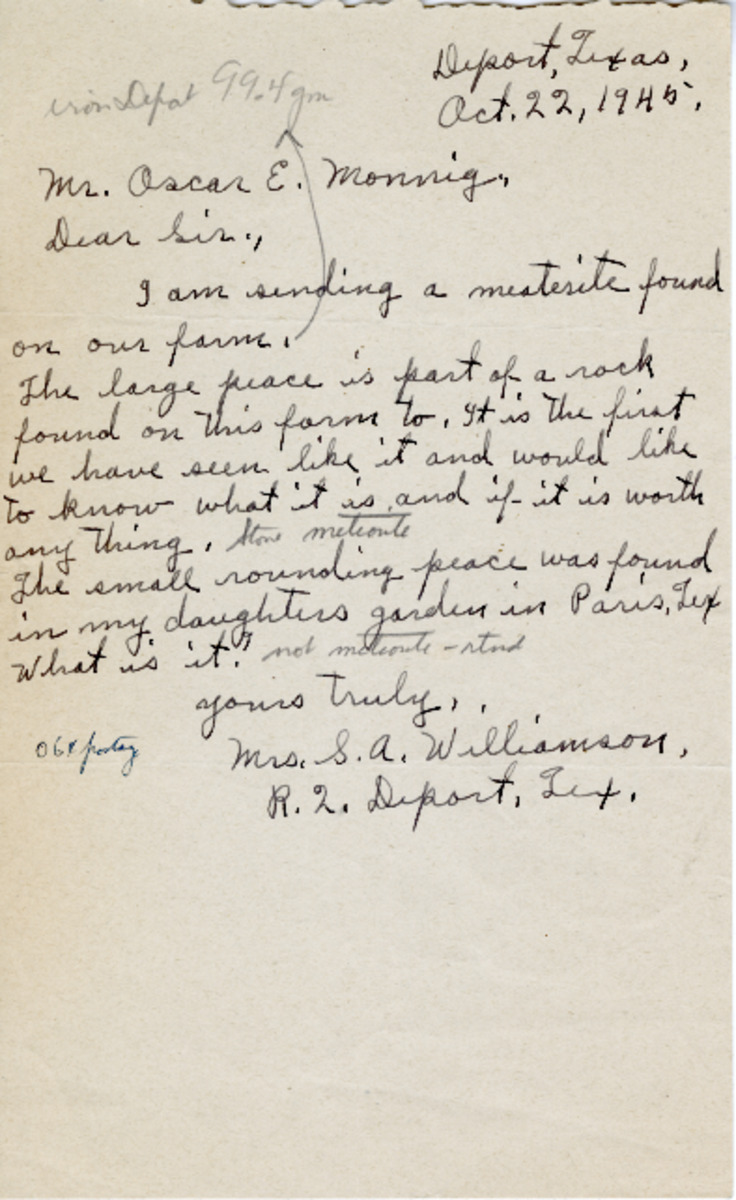 Deport, Texas,
iron Deport 99.4 gm
Oct. 22, 1945.
Mr. Oscar E. Monnig,
Dear Sir.,
I am sending a meaterite found
on our farm.
The large peace is part of a rock
found on this farm to. It is the first
we have seen like it and would like
to know what it is and if it is worth
any thing. Stone meteorite
The small rounding peace was found
in my daughters garden in Paris, Tex
What is it? not meteorite - rtnd
yours truly,.
06¢ postag
Mrs. S. A. Williamson,
R. 2. Deport, Tex.